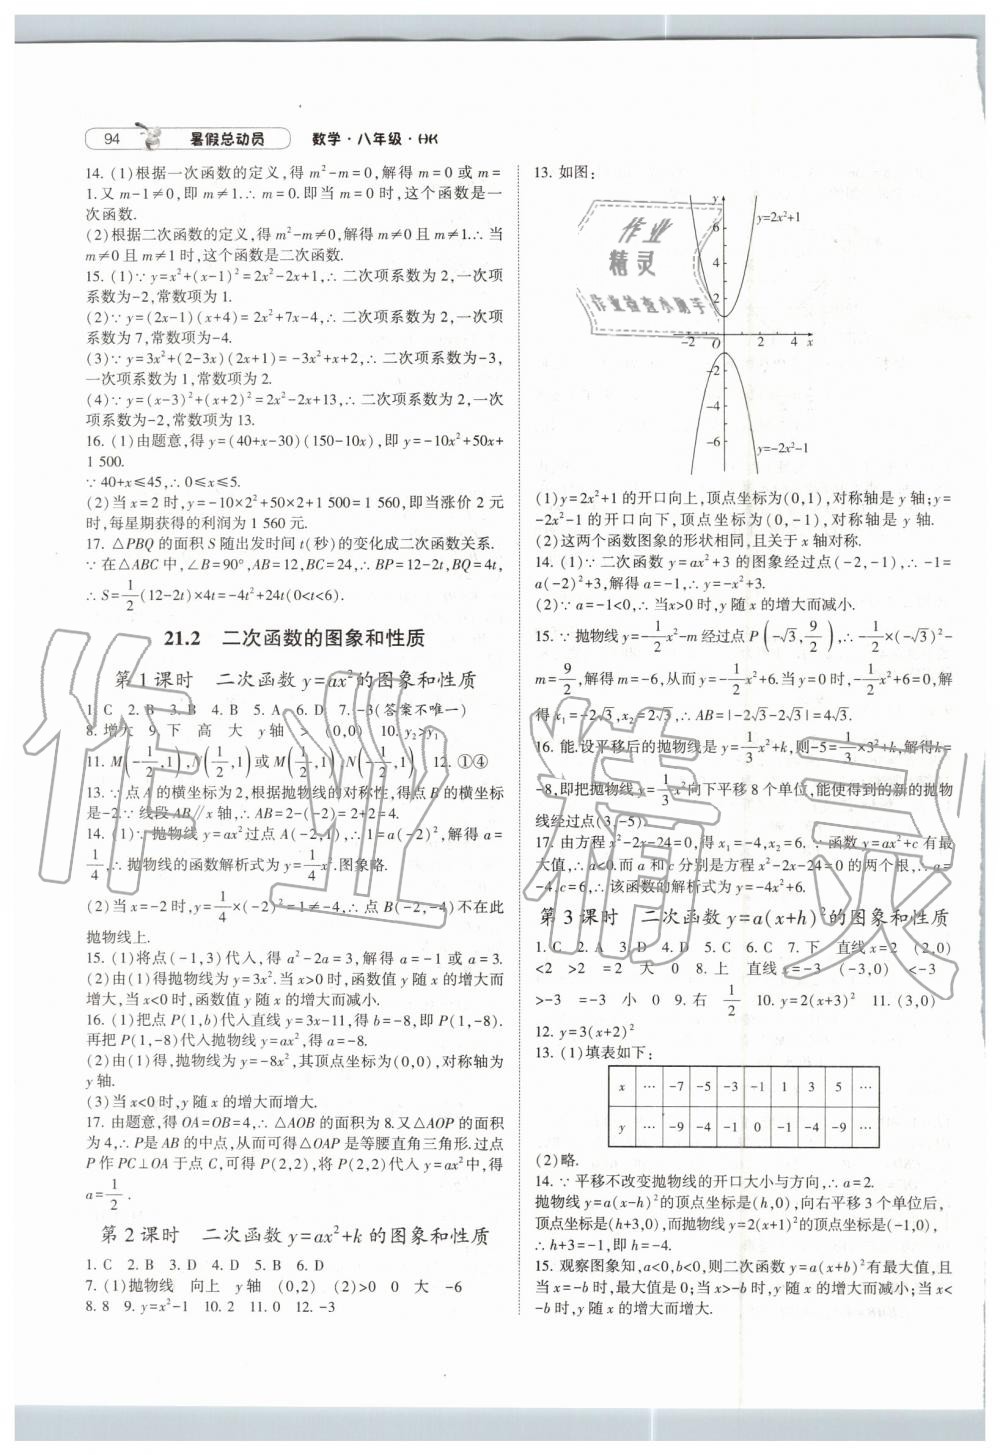 94 暑假总动员 数学·八年级·HK
14. (1)根据一次函数的定义,得 m²-m=0,解得 m=0 或 m=
1.又 m-1≠0,即 m≠1.∴ m=0.即当 m=0 时,这个函数是一
次函数.
(2)根据二次函数的定义,得 m²-m≠0,解得 m≠0 且 m≠1.∴ 当
m≠0 且 m≠1 时,这个函数是二次函数.
15. (1)∵ y=x²+(x-1)²=2x²-2x+1,∴ 二次项系数为 2,一次项
系数为-2,常数项为 1.
(2)∵ y=(2x-1)(x+4)=2x²+7x-4,∴ 二次项系数为 2,一次项
系数为 7,常数项为-4.
(3)∵ y=3x²+(2-3x)(2x+1)=-3x²+x+2,∴ 二次项系数为-3,
一次项系数为 1,常数项为 2.
(4)∵ y=(x-3)²+(x+2)²=2x²-2x+13,∴ 二次项系数为 2,一次
项系数为-2,常数项为 13.
16. (1)由题意,得 y=(40+x-30)(150-10x),即 y=-10x²+50x+
1 500.
∵ 40+x≤45,∴ 0≤x≤5.
(2)当 x=2 时,y=-10×2²+50×2+1 500=1 560,即当涨价 2 元
时,每星期获得的利润为 1 560 元.
17. △PBQ 的面积 S 随出发时间 t(秒)的变化成二次函数关系.
∵ 在△ABC 中,∠B=90°,AB=12,BC=24,∴ BP=12-2t,BQ=4t,
∴ S=1/2(12-2t)×4t=-4t²+24t(0<t<6).
21.2 二次函数的图象和性质
第 1 课时 二次函数 y=ax²的图象和性质
1. C 2. B 3. B 4. B 5. A 6. D 7. -3(答案不唯一)
8. 增大 9. 下 高 大 y轴 > (0,0) 10. y₂>y₁
11. M(-1/2,1),N(1/2,1)或 M(1/2,1),N(-1/2,1) 12. ①④
13. ∵ 点 A 的横坐标为 2,根据抛物线的对称性,得点 B 的横坐标
是-2.∵ 线段 AB∥x 轴,∴ AB=2-(-2)=2+2=4.
14. (1)∵ 抛物线 y=ax²过点 A(-2,1),∴ 1=a(-2)²,解得 a=
1/4,∴ 抛物线的函数解析式为 y=1/4x².图象略.
(2)当 x=-2 时,y=1/4×(-2)²=1≠-4,∴ 点 B(-2,-4)不在此
抛物线上.
15. (1)将点(-1,3)代入,得 a²-2a=3,解得 a=-1 或 a=3.
(2)由(1)得抛物线为 y=3x².当 x>0 时,函数值 y 随 x 的增大而
增大,当 x<0 时,函数值 y 随 x 的增大而减小.
16. (1)把点 P(1,b)代入直线 y=3x-11,得 b=-8,即 P(1,-8).
再把 P(1,-8)代入抛物线 y=ax²,得 a=-8.
(2)由(1)得,抛物线为 y=-8x²,其顶点坐标为(0,0),对称轴为
y 轴.
(3)当 x<0时,y 随 x 的增大而增大.
17. 由题意,得 OA=OB=4,∴ △AOB 的面积为 8.又△AOP 的面积
为 4,∴ P是 AB 的中点,从而可得△OAP 是等腰直角三角形.过点
P 作 PC⊥OA 于点 C,可得 P(2,2),将 P(2,2)代入 y=ax²中,得
a=1/2.
第 2 课时 二次函数 y=ax²+k 的图象和性质
1. C 2. B 3. D 4. D 5. B 6. D
7. (1)抛物线 向上 y 轴 (0,2) (2)>0 0 大 -6
8. 8 9. y=x²-1 10. 2 11. 0 12. -3
13. 如图:
y
6
4
2
-2 O 2 4 x
-2
-4
-6
y=2x²+1
y=-2x²-1
作业
精灵
作业检查小助手
(1)y=2x²+1 的开口向上,顶点坐标为(0,1),对称轴是 y 轴;y=
-2x²-1 的开口向下,顶点坐标为(0,-1),对称轴是 y 轴.
(2)这两个函数图象的形状相同,且关于 x 轴对称.
14. (1)∵ 二次函数 y=ax²+3 的图象经过点(-2,-1),∴ -1=
a(-2)²+3,解得 a=-1,∴ y=-x²+3.
(2)∵ a=-1<0,∴ 当x>0 时,y 随 x 的增大而减小.
15. ∵ 抛物线 y=-1/2x²-m 经过点 P(-√3,9/2),∴ -1/2×(-√3)²-
m=9/2,解得 m=-6,从而 y=-1/2x²+6.当 y=0 时,-1/2x²+6=0,解
得 x₁=-2√3,x₂=2√3,∴ AB=|-2√3-2√3|=4√3.
16. 能.设平移后的抛物线是 y=1/3x²+k,则-5=1/3×3²+k,解得k=
-8,即把抛物线 y=1/3x²向下平移 8 个单位,能使得到的新的抛物
线经过点(3,-5).
17. 由方程 x²-2x-24=0,得 x₁=-4,x₂=6. ∵ 函数 y=ax²+c 有最
大值,∴ a<0.而 a 和 c 分别是方程 x²-2x-24=0 的两个根,∴ a=
-4,c=6,∴ 该函数的解析式为 y=-4x²+6.
第 3 课时 二次函数 y=a(x+h)²的图象和性质
1. C 2. A 3. D 4. D 5. C 6. C 7. 下 直线 x=2 (2,0)
<2 >2 =2 大 0 8. 上 直线 x=-3 (-3,0) <-3
>-3 =-3 小 0 9. 右 1/2 10. y=2(x+3)² 11. (3,0)
12. y=3(x+2)²
13. (1)填表如下:
x … -7 -5 -3 -1 1 3 5 …
y … -9 -4 -1 0 -1 -4 -9 …
(2)略.
14. ∵ 平移不改变抛物线的开口大小与方向,∴ a=2.
抛物线 y=a(x-h)²的顶点坐标是(h,0),向右平移 3 个单位后,
顶点坐标是(h+3,0),而抛物线 y=2(x+1)²的顶点坐标是(-1,0),
∴ h+3=-1,即 h=-4.
15. 观察图象知,a<0,b<0,则二次函数 y=a(x+b)²有最大值,且
当 x=-b 时,最大值是 0;当 x>-b 时,y 随 x 的增大而减小;当 x<
-b 时,y 随 x 的增大而增大.
作业精灵